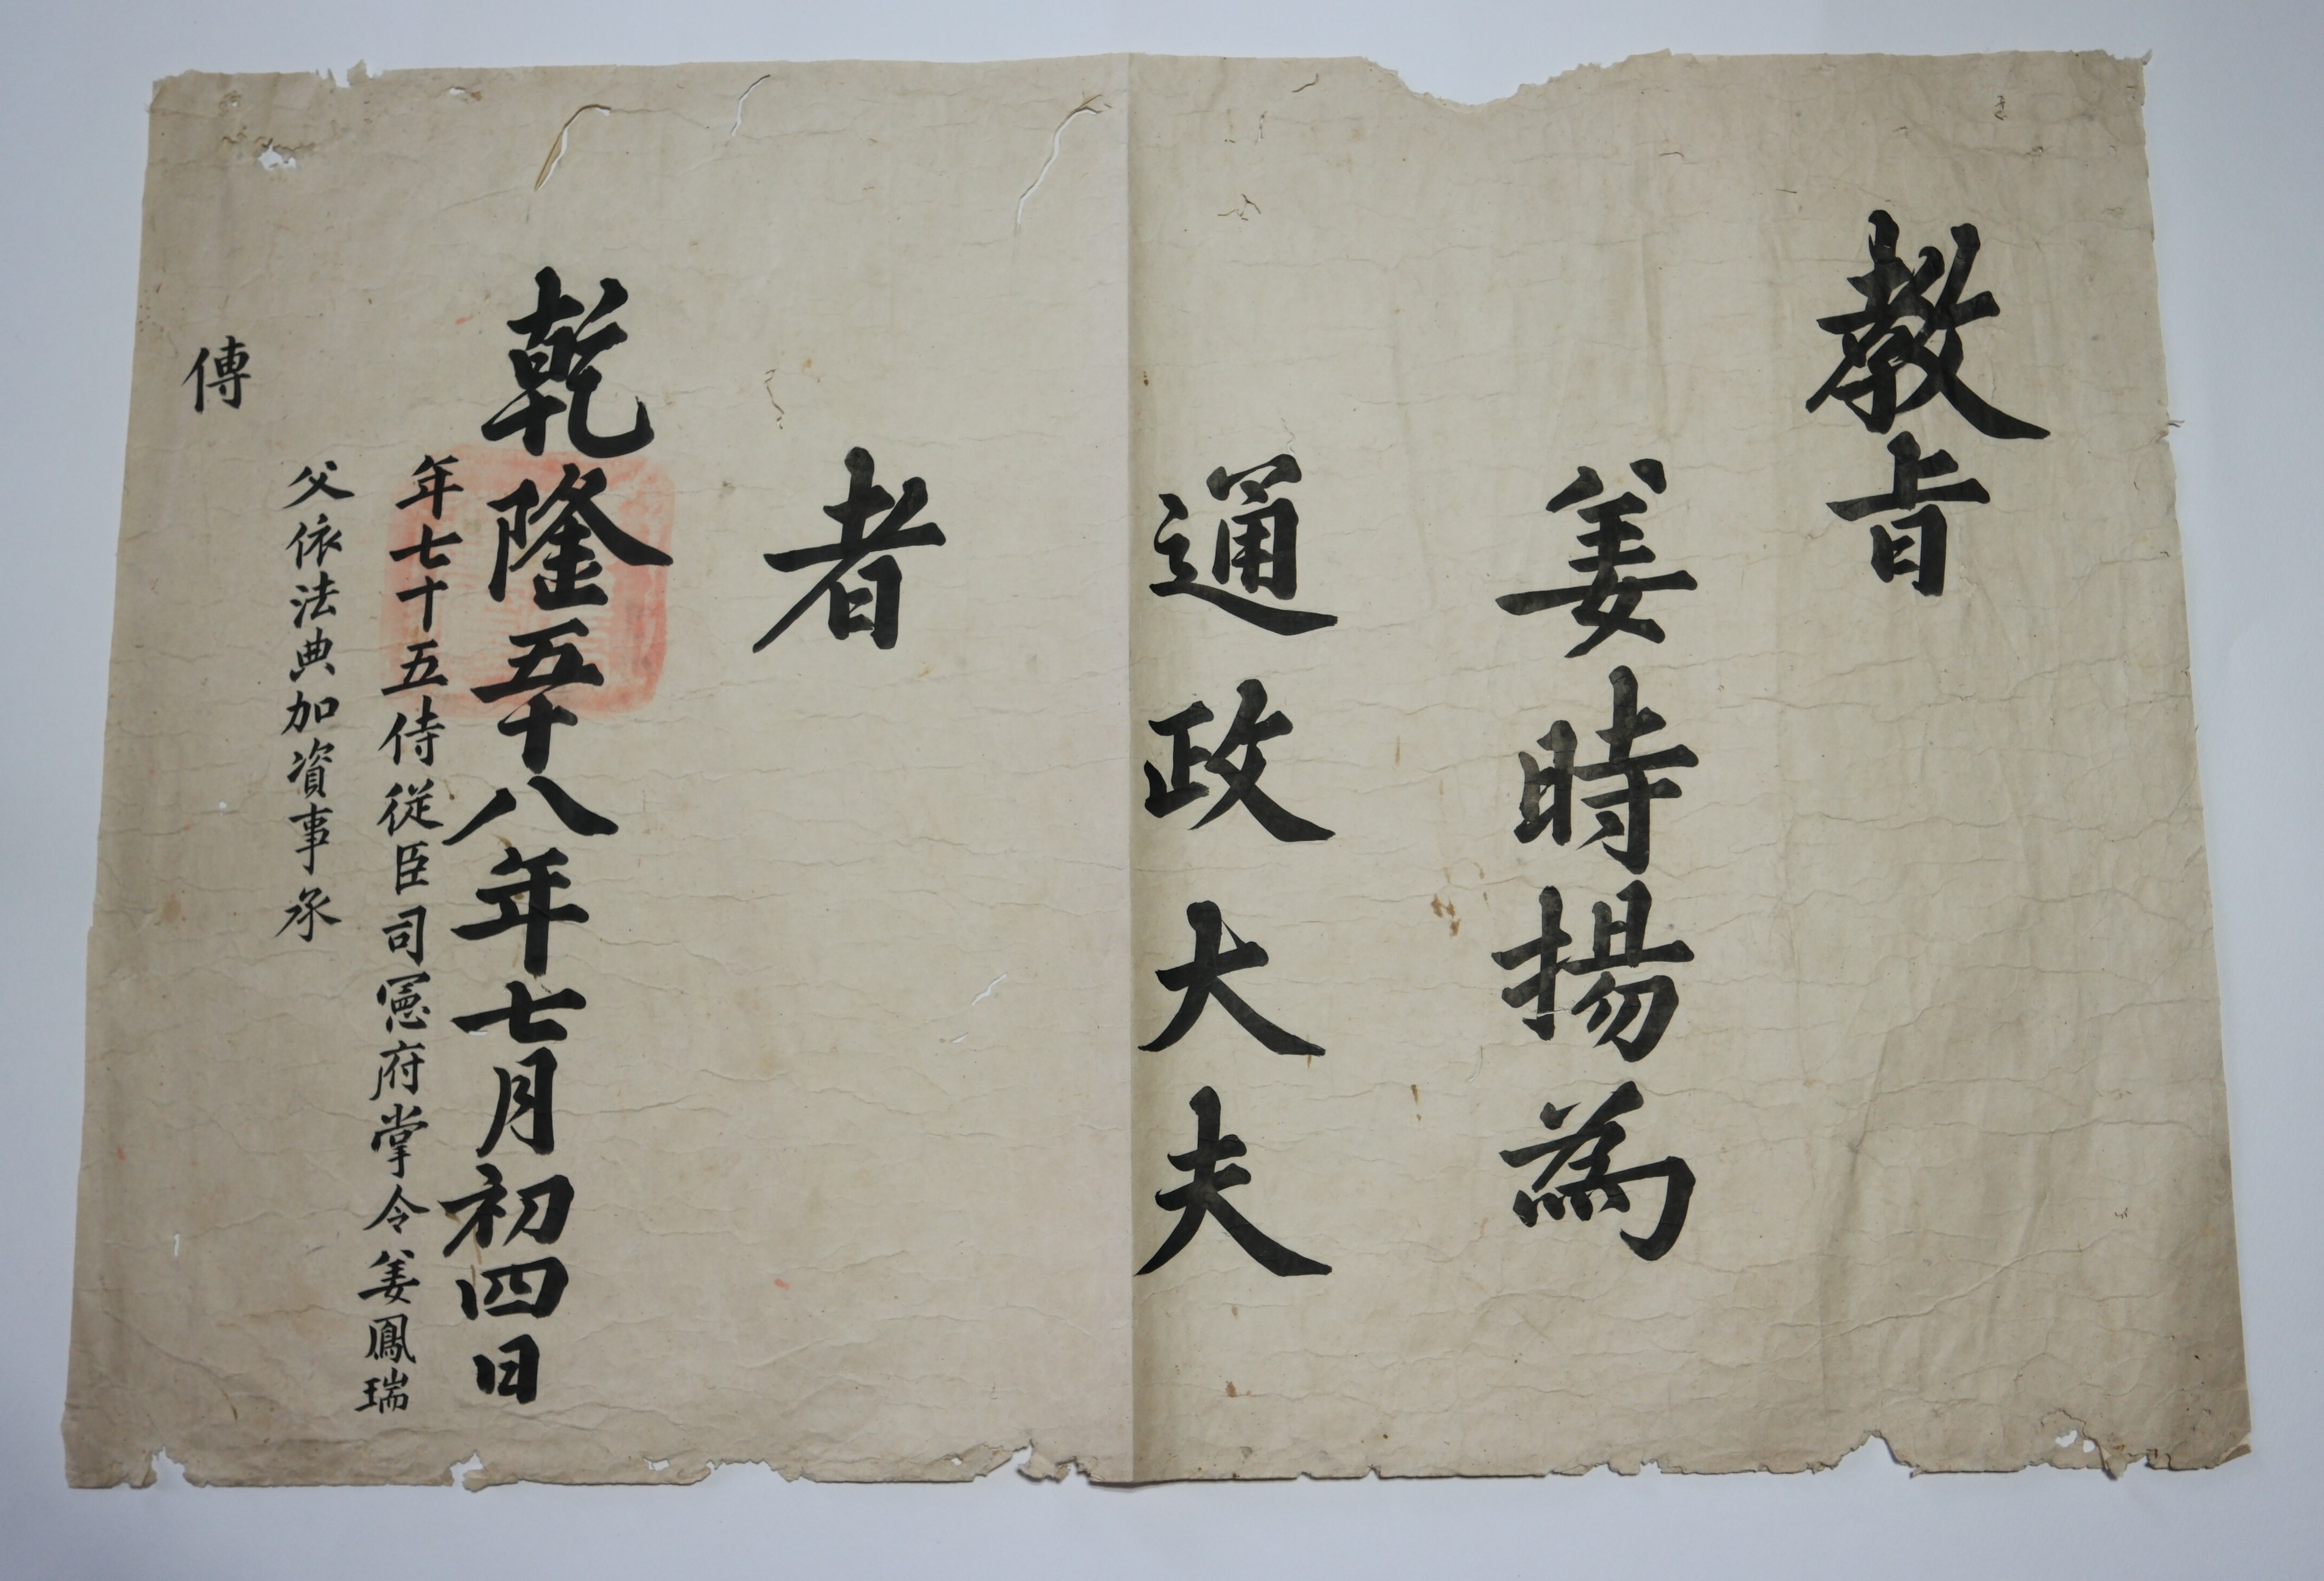 教旨
姜時揚為
通政大夫
者
乾隆五十八年七月初四日
年七十五侍從臣司憲府掌令姜鳳瑞
父依法典加資事承
傳